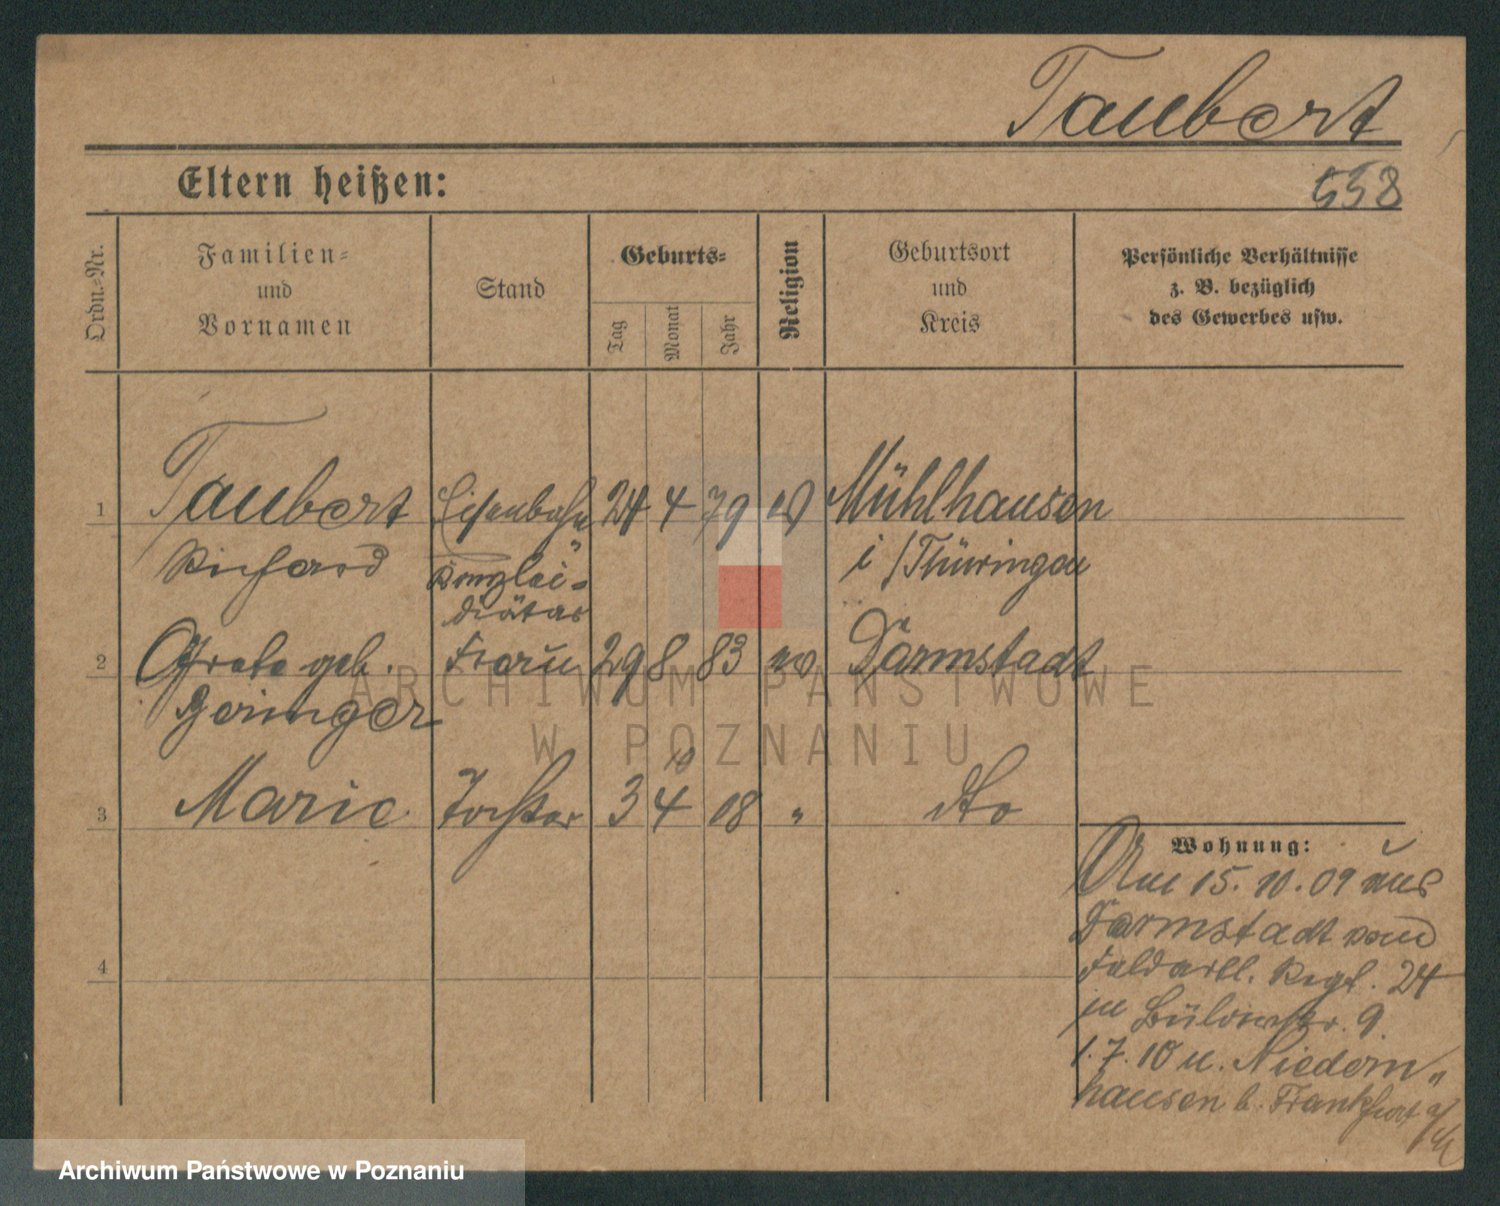 Taubert
Eltern heißen:
558
Ordn.-Nr.
Familien-
und
Vornamen
Stand
Geburts-
Tag
Monat
Jahr
Religion
Geburtsort
und
Kreis
Persönliche Verhältnisse
z. B. bezüglich
des Gewerbes usw.
1 Taubert Eisenbahn 24 4 79 ev Mühlhausen
Richard Kanzlei- i/Thüringen
diätar
2 Grete geb. Frau 29 8 83 ev Darmstadt
Geringer
3 Marie Tochter 3 4 08 " dto
4
Wohnung:
Am 15. 10. 09 aus
Darmstadt vom
Feldartl. Regt. 24
in Bülowstr. 9
1. 7. 10 n. Niedern"
hausen b. Frankfurt a/M
ARCHIWUM PAŃSTWOWE
W POZNANIU
Archiwum Państwowe w Poznaniu